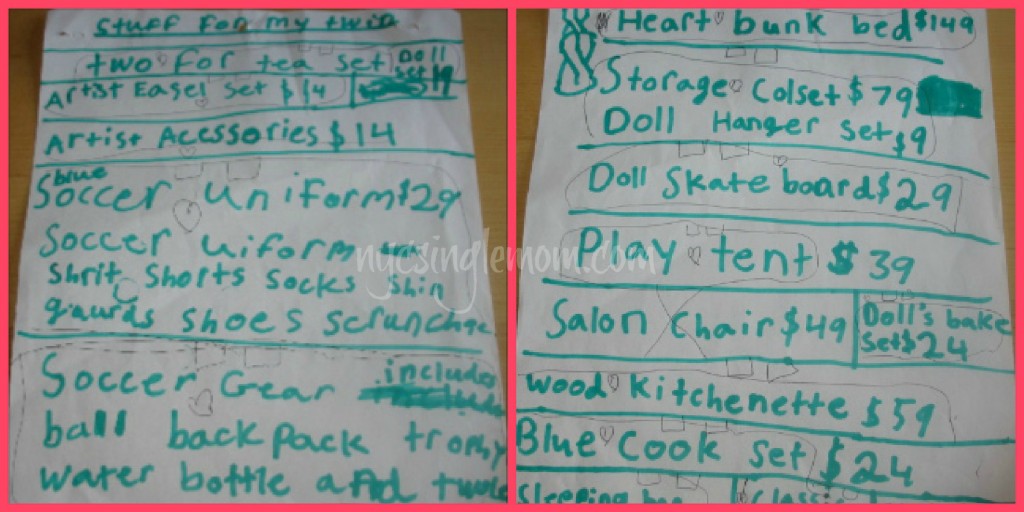 stuff for my twin
two for tea set Doll set $19
Artist Easel set $14
Artist Acessories $14
blue
Soccer Uniform $29
Soccer uiform
Shrit Shorts socks shin
gaurds shoes
Soccer Gear includes
ball back pack trophy
water bottle and
Heart bunk bed $149
Storage Colset $79
Doll Hanger set $9
Doll skate board $29
Play tent $39
Salon Chair $49
Doll's bake set $24
wood kitchenette $59
Blue Cook set $24
nycsinglemom.com